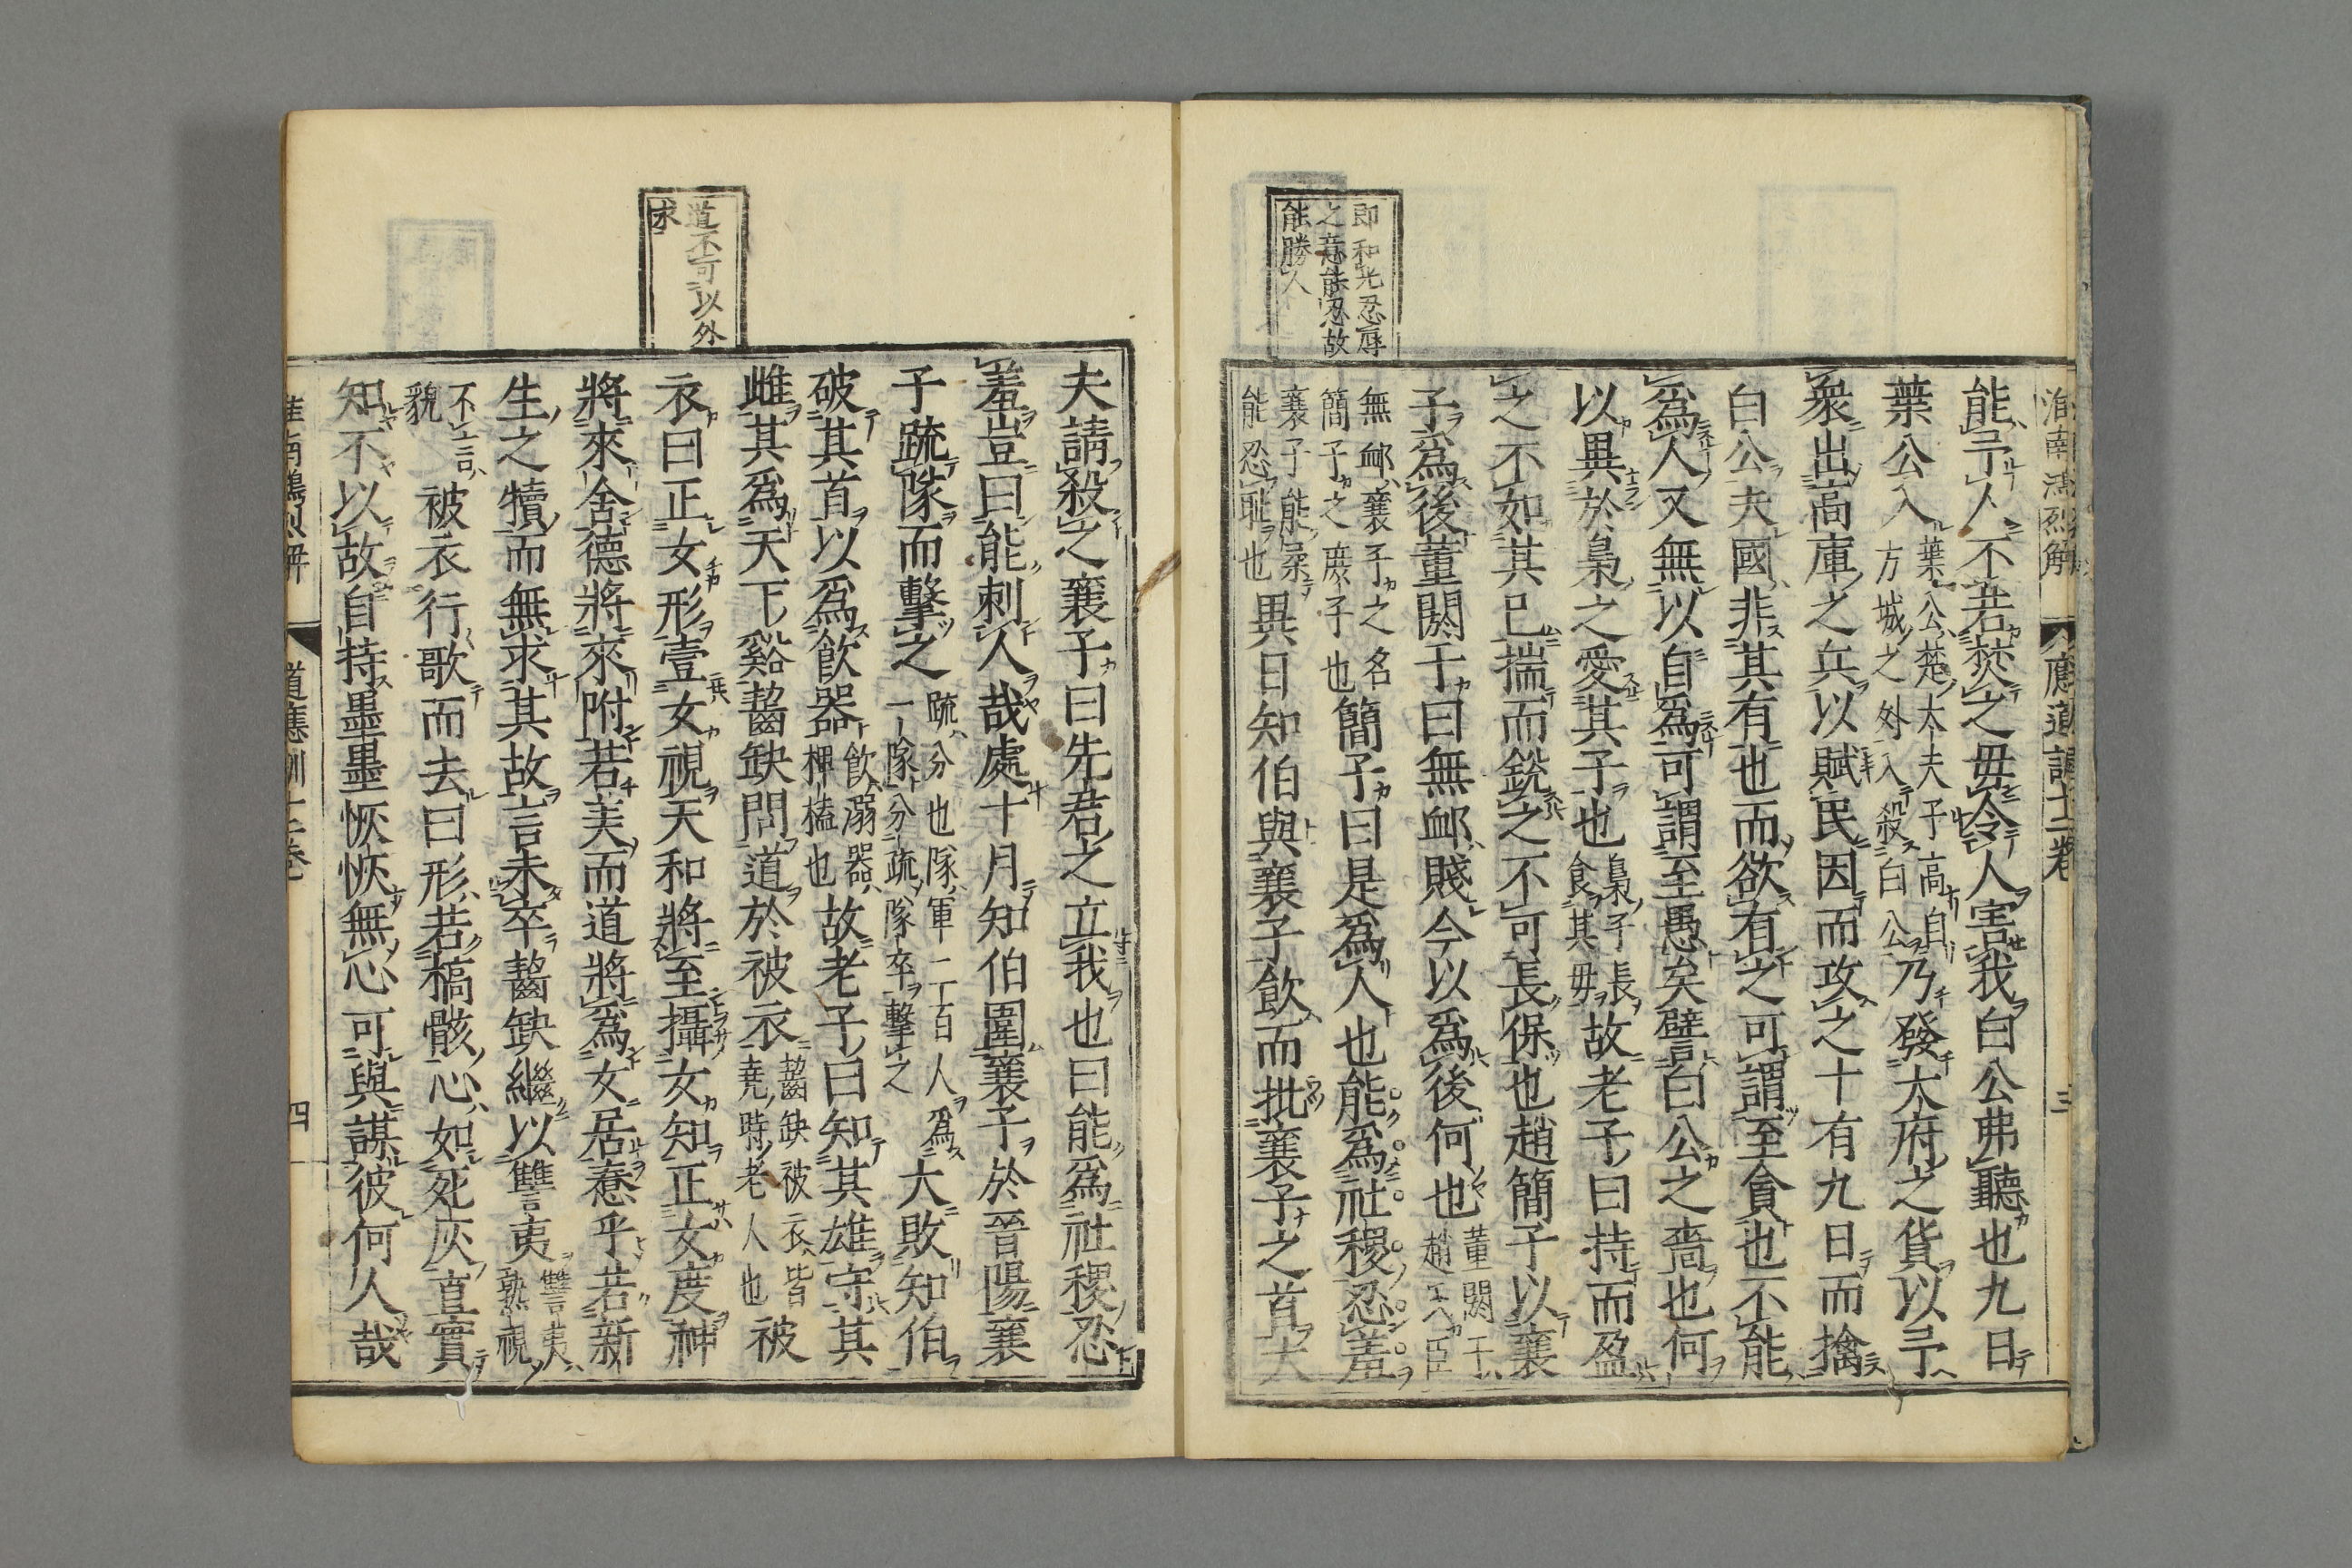 淮南鴻烈解
應道訓十二卷
三
能予人不若焚之毋令人害我白公弗聽也九日
葉公入葉公楚大夫子高自方城之外入殺白公乃發大府之貨以予
衆出高庫之兵以賦民因而攻之十有九日而擒
白公夫國非其有也而欲有之可謂至貪也不能
爲人又無以自爲可謂至愚矣譬白公之嗇也何
以異於梟之愛其子也梟子長食其毋故老子曰持而盈
之不如其已揣而銳之不可長保也趙簡子以襄
子爲後董閼于曰無卹賤今以爲後何也董閼于趙氏臣
無卹襄子之名簡子之庶子也簡子曰是爲人也能爲社稷忍羞
襄子能柔能忍耻也異日知伯與襄子飮而批襄子之首大
即和光忍辱
之意能忍故
能勝人
夫請殺之襄子曰先君之立我也曰能爲社稷忍
羞豈曰能刺人哉處十月知伯圍襄子於晉陽襄
子䟽隊而擊之䟽分也隊軍二百人爲一隊分䟽隊卒擊之大敗知伯
破其首以爲飮器飮溺器椑榼也故老子曰知其雄守其
雌其爲天下谿齧缺問道於被衣齧缺被衣皆堯時老人也被
衣曰正女形壹女視天和將至攝女知正女度神
將來舍德將來附若美而道將爲女居惷乎若新
生之犢而無求其故言未卒齧缺繼以讐夷讐夷熟視
不言貌被衣行歌而去曰形若槁骸心如死灰直實
知不以故自持墨墨恢恢無心可與謀彼何人哉
道不可以外
求
淮南鴻烈解
道應訓十二卷
四